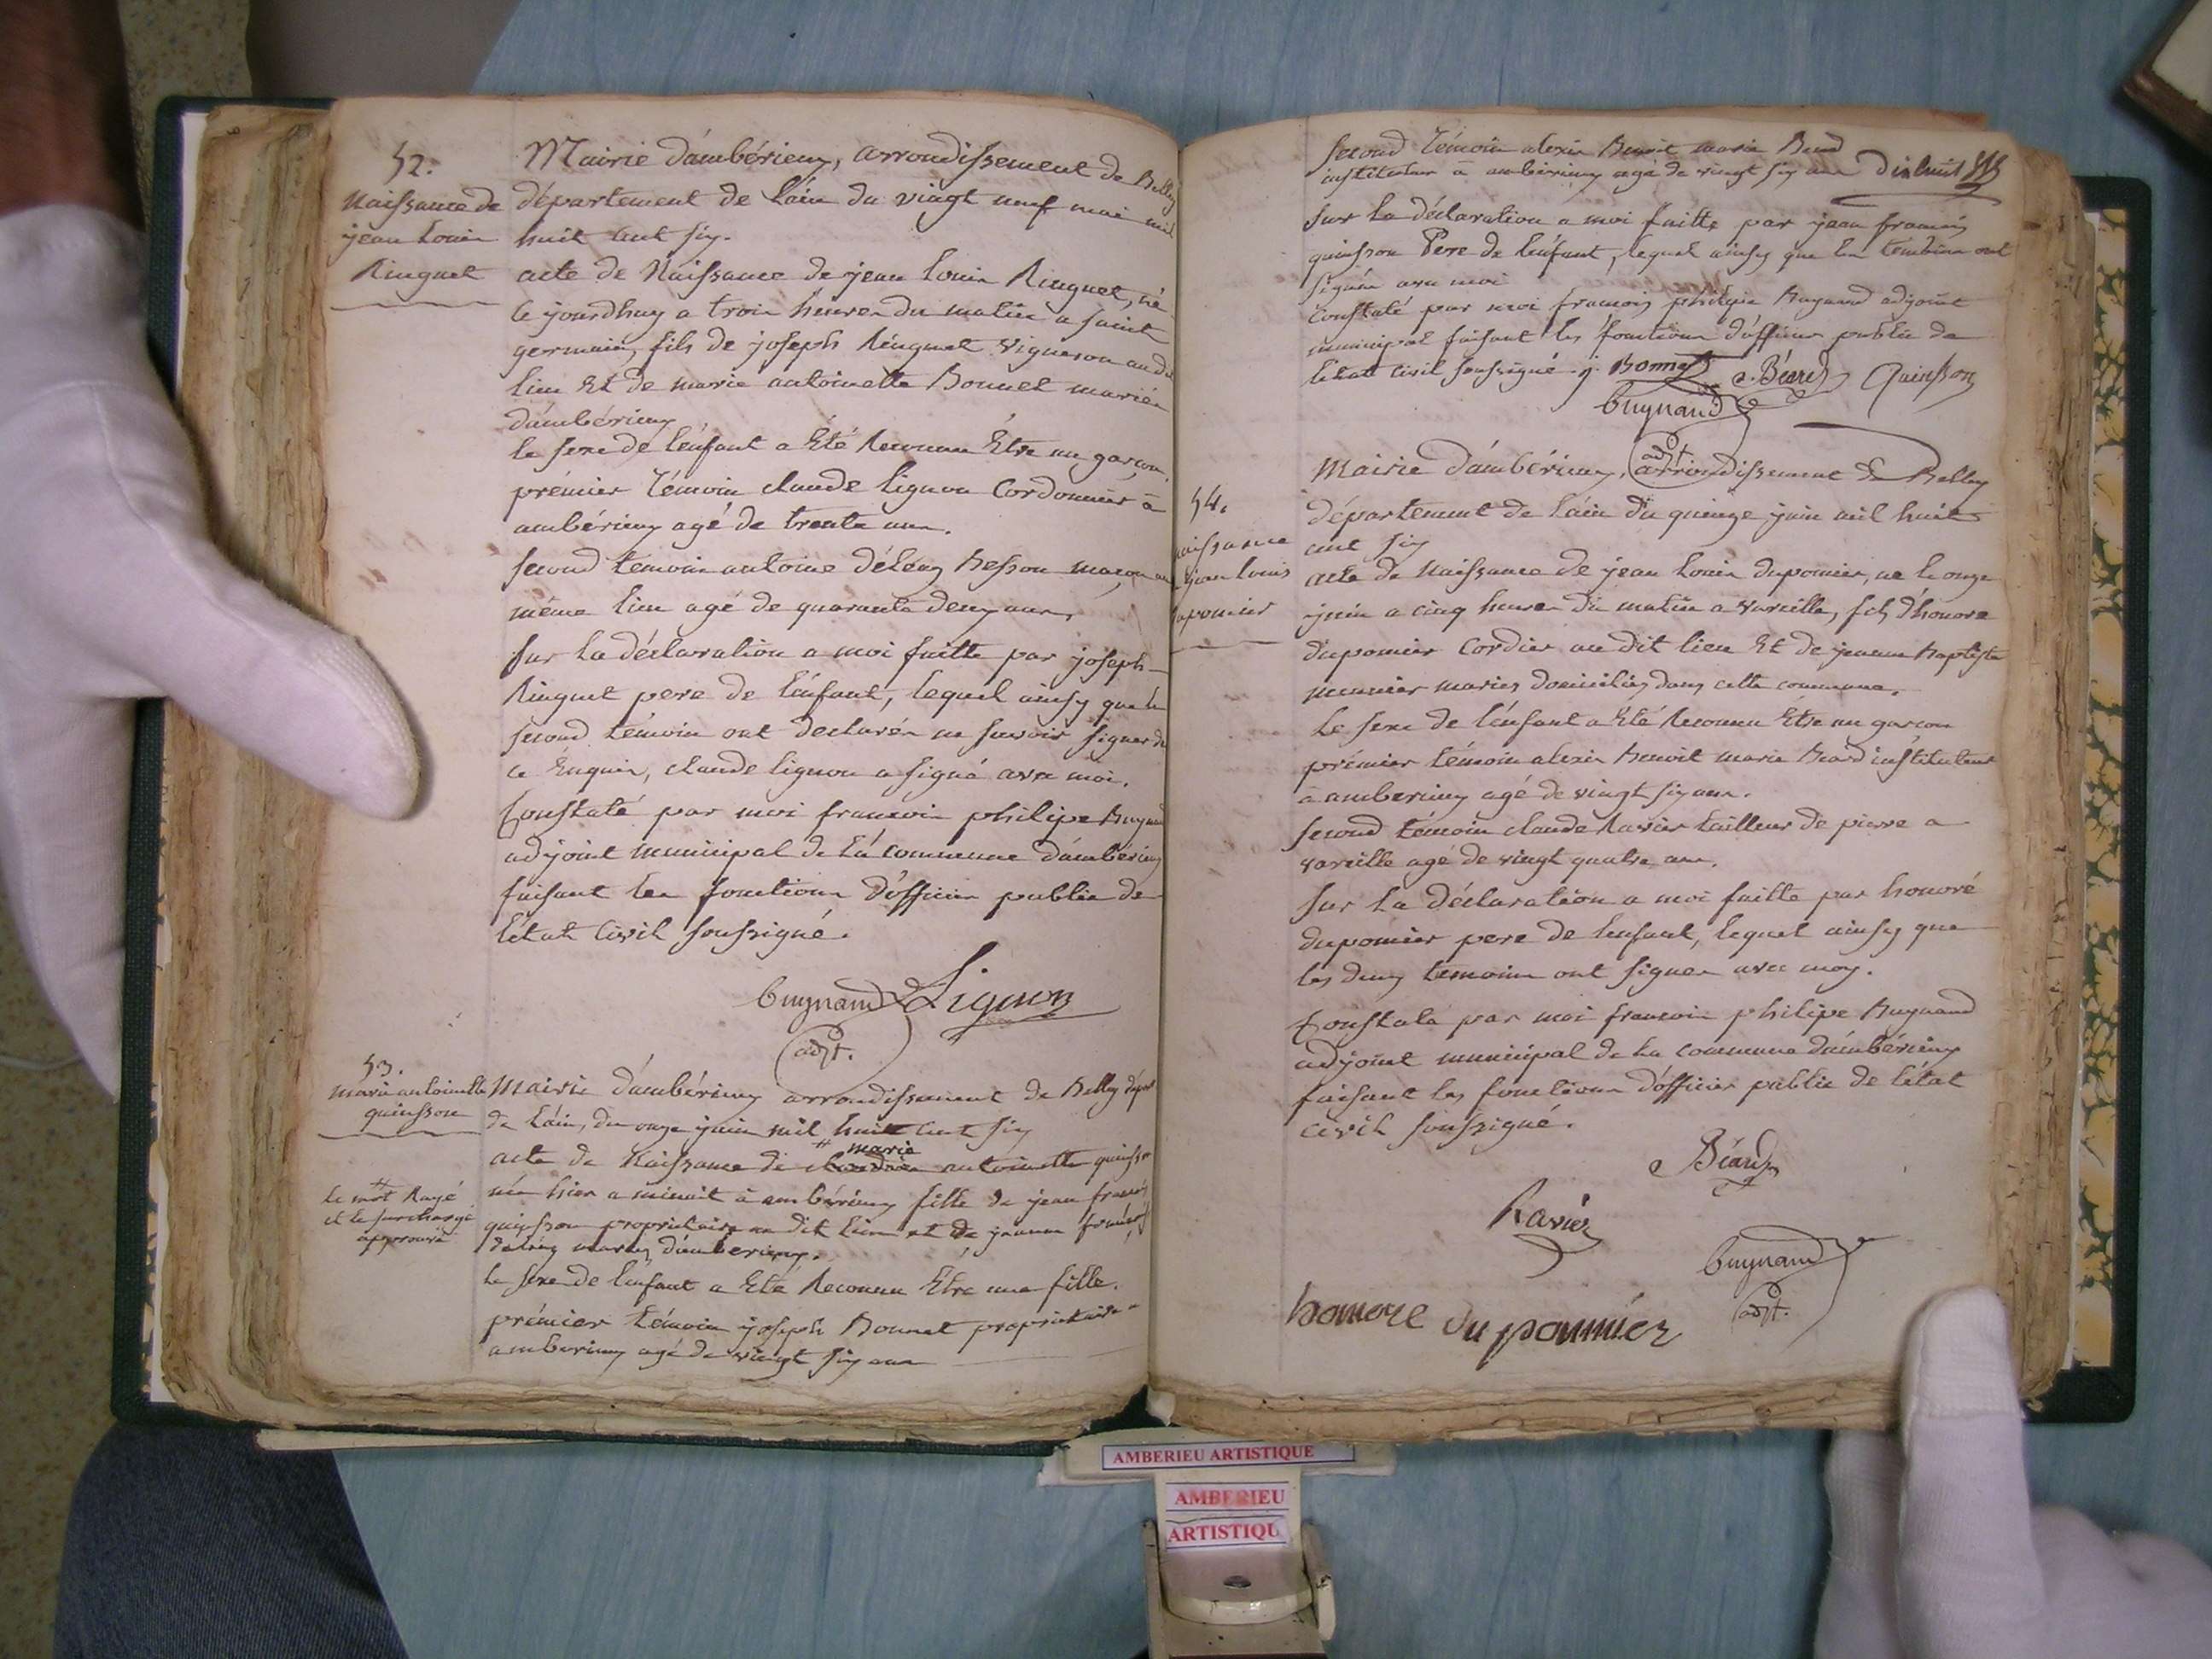 52.
Naissance de
jean Louis
Ringuet
Mairie d'ambérieux, arrondissement de Belley
département de l'ain du vingt neuf mai mil
huit cent six.
acte de Naissance de jean Louis Ringuet, né
ce jourdhuy a trois heures du matin a saint
germain, fils de joseph Ringuet vigneron au dit
lieu Et de marie antoinette Bonnet mariés
d'ambérieux
le sexe de l'enfant a Eté Reconnu Être un garçon,
prémier témoin claude lignon Cordonnier à
ambérieux agé de trente ans.
second temoin antoine déléaz Besson maçon au
même lieu agé de quarante deux ans,
sur la déclaration a moi faitte par joseph
Ringuet pere de l'enfant, lequel ainsy que le
second témoin ont declarés ne savoir signer de
ce Enquis, claude lignon a signé avec moi.
Constaté par moi francois philipe Buynand
adjoint municipal de la commune d'ambérieux
faisant les fonctions d'officier public de
l'état civil soussigné.
Buynand Lignon
adjt.
53.
marie antoinette
quinsson
le mot Rayé
et le surchargé
approuvé
Mairie d'ambérieux arrondissement de Belley dépt
de l'ain, du onze juin mil huit cent six
# marie
acte de Naissance de antoinette quinsson
née hier a minuit à ambérieux fille de jean francois
quinsson propriétaire au dit lieu et de jeanne
déléaz mariés d'ambérieux.
le sexe de l'enfant a Eté Reconnu Être une fille.
prémier témoin joseph Bonnet propriétaire a
ambérieux agé de vingt six ans
second témoin alexis Benoit marie Beard
instituteur à ambérieux agé de vingt six ans Dixhuit
sur la déclaration a moi faitte par jean francois
quinsson Pere de l'enfant, lequel ainsy que les temoins ont
signés avec moi
Constaté par moi francois philipe Buynand adjoint
municipal faisant les fonctions d'officier public de
l'état civil soussigné j. Bonnet a. Béard Quinsson
Buynand
adjt
54.
naissance
jean louis
duponier
Mairie d'ambérieux, arrondissement de Belley
département de l'ain du quinze juin mil huit
cent six
acte de Naissance de jean Louis duponier, né le onze
juin a cinq heures du matin a vareille, fils d'honore
duponier Cordier au dit lieu Et de jeanne Baptiste
meunier mariés domiciliés dans cette commune.
Le sexe de l'enfant a Eté Reconnu Etre un garcon
prémier témoin alexis Benoit marie Beard instituteur
à ambérieux agé de vingt six ans.
second témoin claude Ravier tailleur de pierre a
vareille agé de vingt quatre ans.
sur la déclaration a moi faitte par honoré
duponier pere de l'enfant, lequel ainsy que
les deux temoins ont signer avec moy.
Constaté par moi francois philipe Buynand
adjoint municipal de la commune d'ambérieux
faisant les fonctions d'officier public de l'état
civil soussigné.
a Béard
Ravier
Buynand
adjt.
honore du pounier
AMBERIEU ARTISTIQUE
AMBERIEU
ARTISTIQU